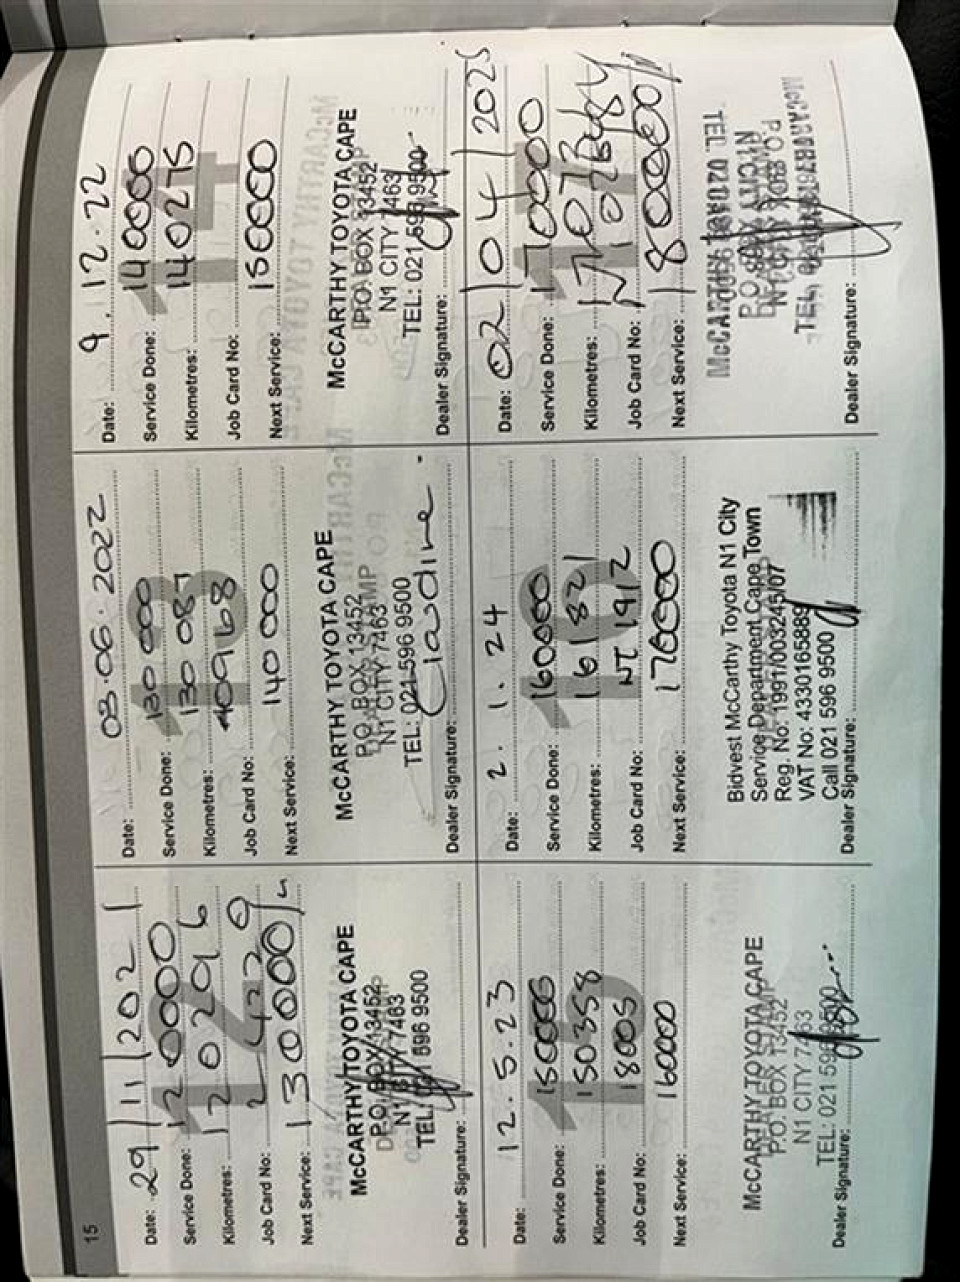 15
Date: 29/11/2021
Service Done: 120000
Kilometres: 120296
Job Card No: 2429
Next Service: 130000
McCARTHY TOYOTA CAPE
P.O. BOX 13452
N1 CITY 7463
TEL: 021 596 9500
Dealer Signature:
Date: 03.06.2022
Service Done: 130 000
Kilometres: 130 087
Job Card No: 409168
Next Service: 140 000
McCARTHY TOYOTA CAPE
P.O. BOX 13452
N1 CITY 7463
TEL: 021 596 9500
Dealer Signature: Claudine
Date: 9.12.22
Service Done: 140000
Kilometres: 140275
Job Card No:
Next Service: 150000
McCARTHY TOYOTA CAPE
P.O. BOX 13452
N1 CITY 7463
TEL: 021 596 9500
Dealer Signature:
Date: 12.5.23
Service Done: 150000
Kilometres: 150358
Job Card No: 18005
Next Service: 160000
McCARTHY TOYOTA CAPE
P.O. BOX 13452
N1 CITY 7463
TEL: 021 596 9500
Dealer Signature:
Date: 2.1.24
Service Done: 160000
Kilometres: 161821
Job Card No: NT 1912
Next Service: 170000
Bidvest McCarthy Toyota N1 City
Service Department Cape Town
Reg. No: 1991/003245/07
VAT No: 4330165889
Call 021 596 9500
Dealer Signature:
Date: 02/04/2025
Service Done: 170000
Kilometres:
Job Card No:
Next Service: 180000
McCARTHY
P.O. BOX
N1 CITY
TEL
Dealer Signature: